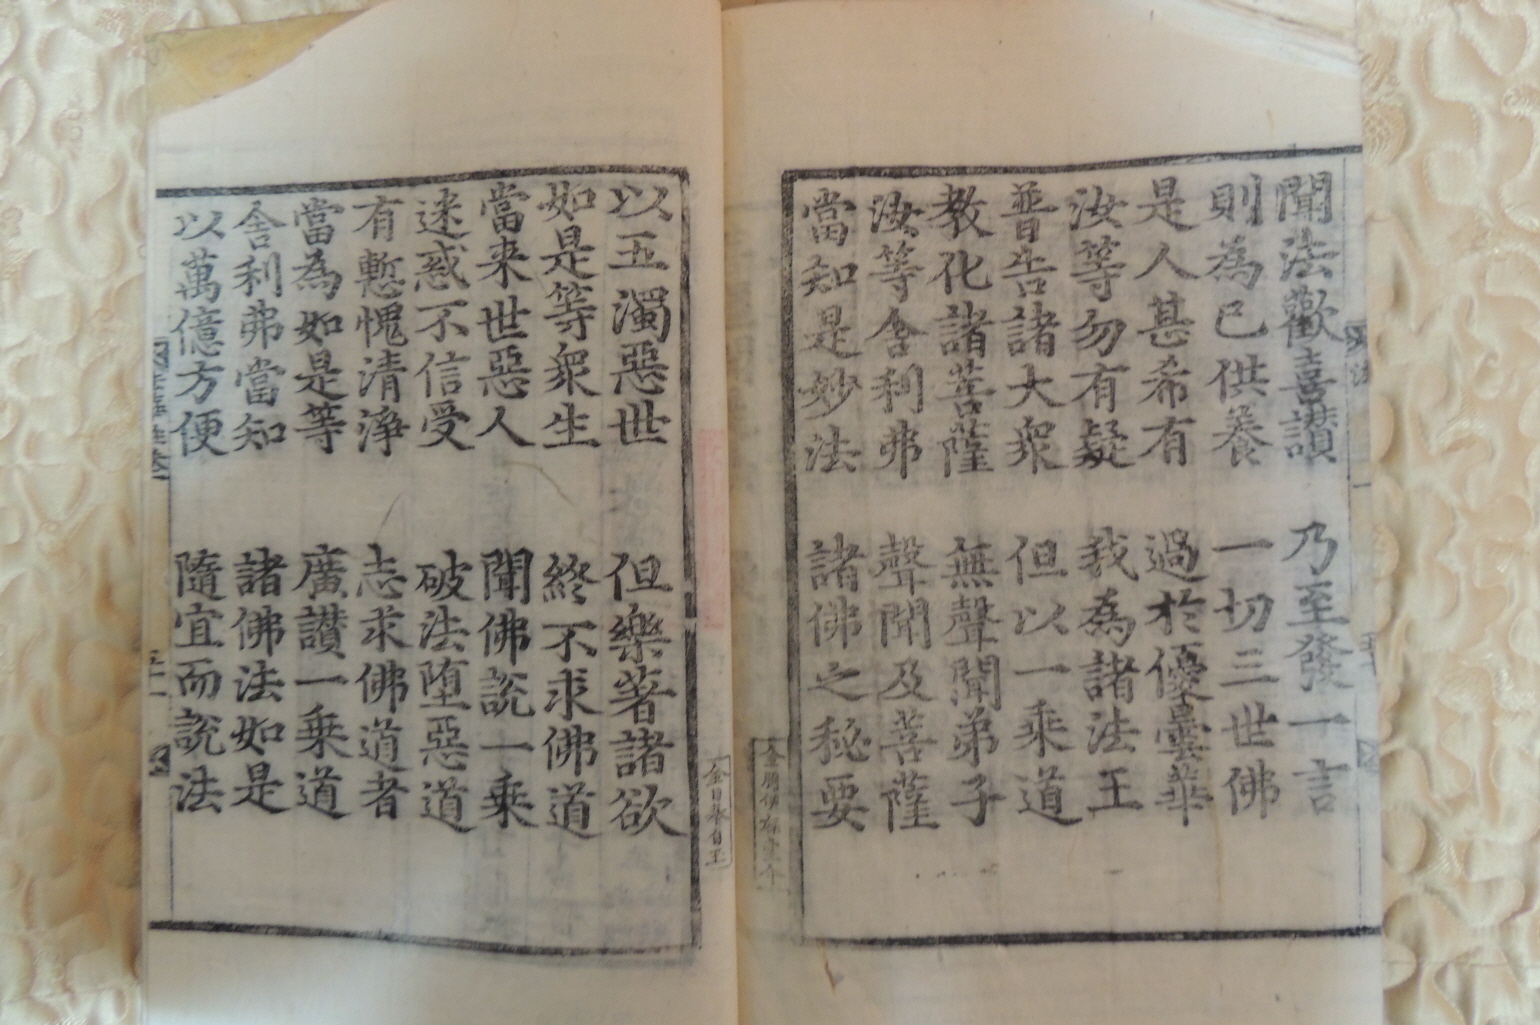 聞法歡喜讃　乃至發一言
則為已供養　一切三世佛
是人甚希有　過於優曇華
汝等勿有疑　我為諸法王
普告諸大衆　但以一乘道
教化諸菩薩　無聲聞弟子
汝等舍利弗　聲聞及菩薩
當知是妙法　諸佛之秘要
以五濁惡世　但樂著諸欲
如是等衆生　終不求佛道
當来世惡人　聞佛說一乗
迷惑不信受　破法墮惡道
有慙愧清淨　志求佛道者
當為如是等　廣讃一乗道
舍利弗當知　諸佛法如是
以萬億方便　隨宜而說法